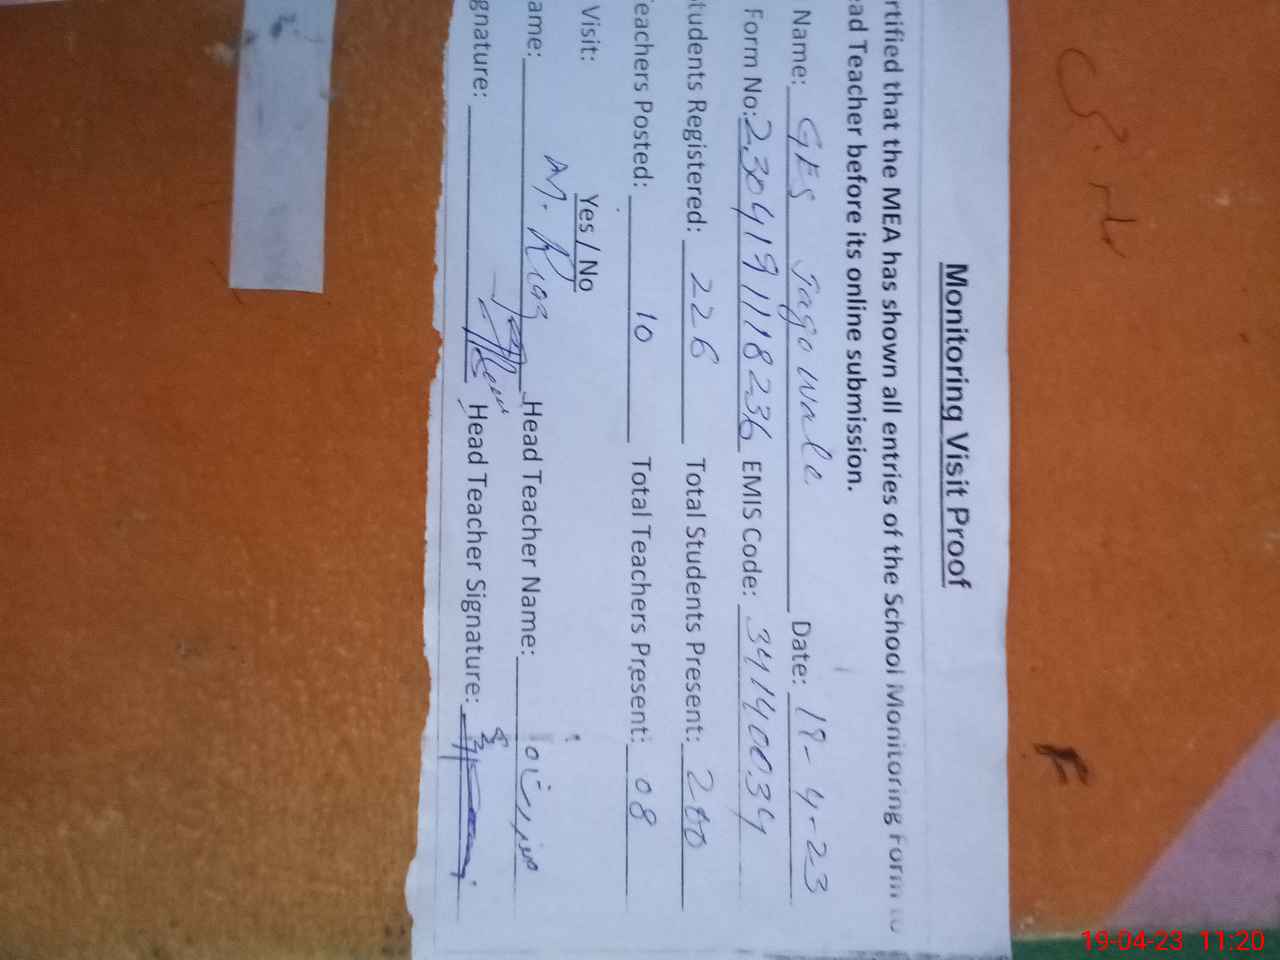 Monitoring Visit Proof
rtified that the MEA has shown all entries of the School Monitoring Form to
ead Teacher before its online submission.
Name: GES Jagowala Date: 19-4-23
Form No: 2304191118236 EMIS Code: 34140034
tudents Registered: 226 Total Students Present: 200
eachers Posted: 10 Total Teachers Present: 08
Visit: Yes / No
ame: M. Riaz Head Teacher Name:
gnature: Head Teacher Signature:
F
19-04-23 11:20